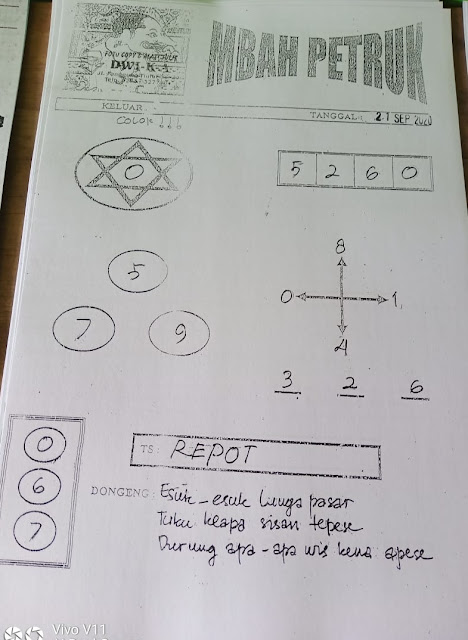 MBAH PETRUK
FOTO COPY & 
DWI-K.A
KELUAR :
TANGGAL : 21 SEP 2020
COLOK !!!
0
5 2 6 0
5
7 9
8
0 1
4
3 2 6
0
6
7
TS : REPOT
DONGENG : Esuk-esuk lunga pasar
Tuku klapa sisan tepese
Durung apa-apa wis kena apese
Vivo V11